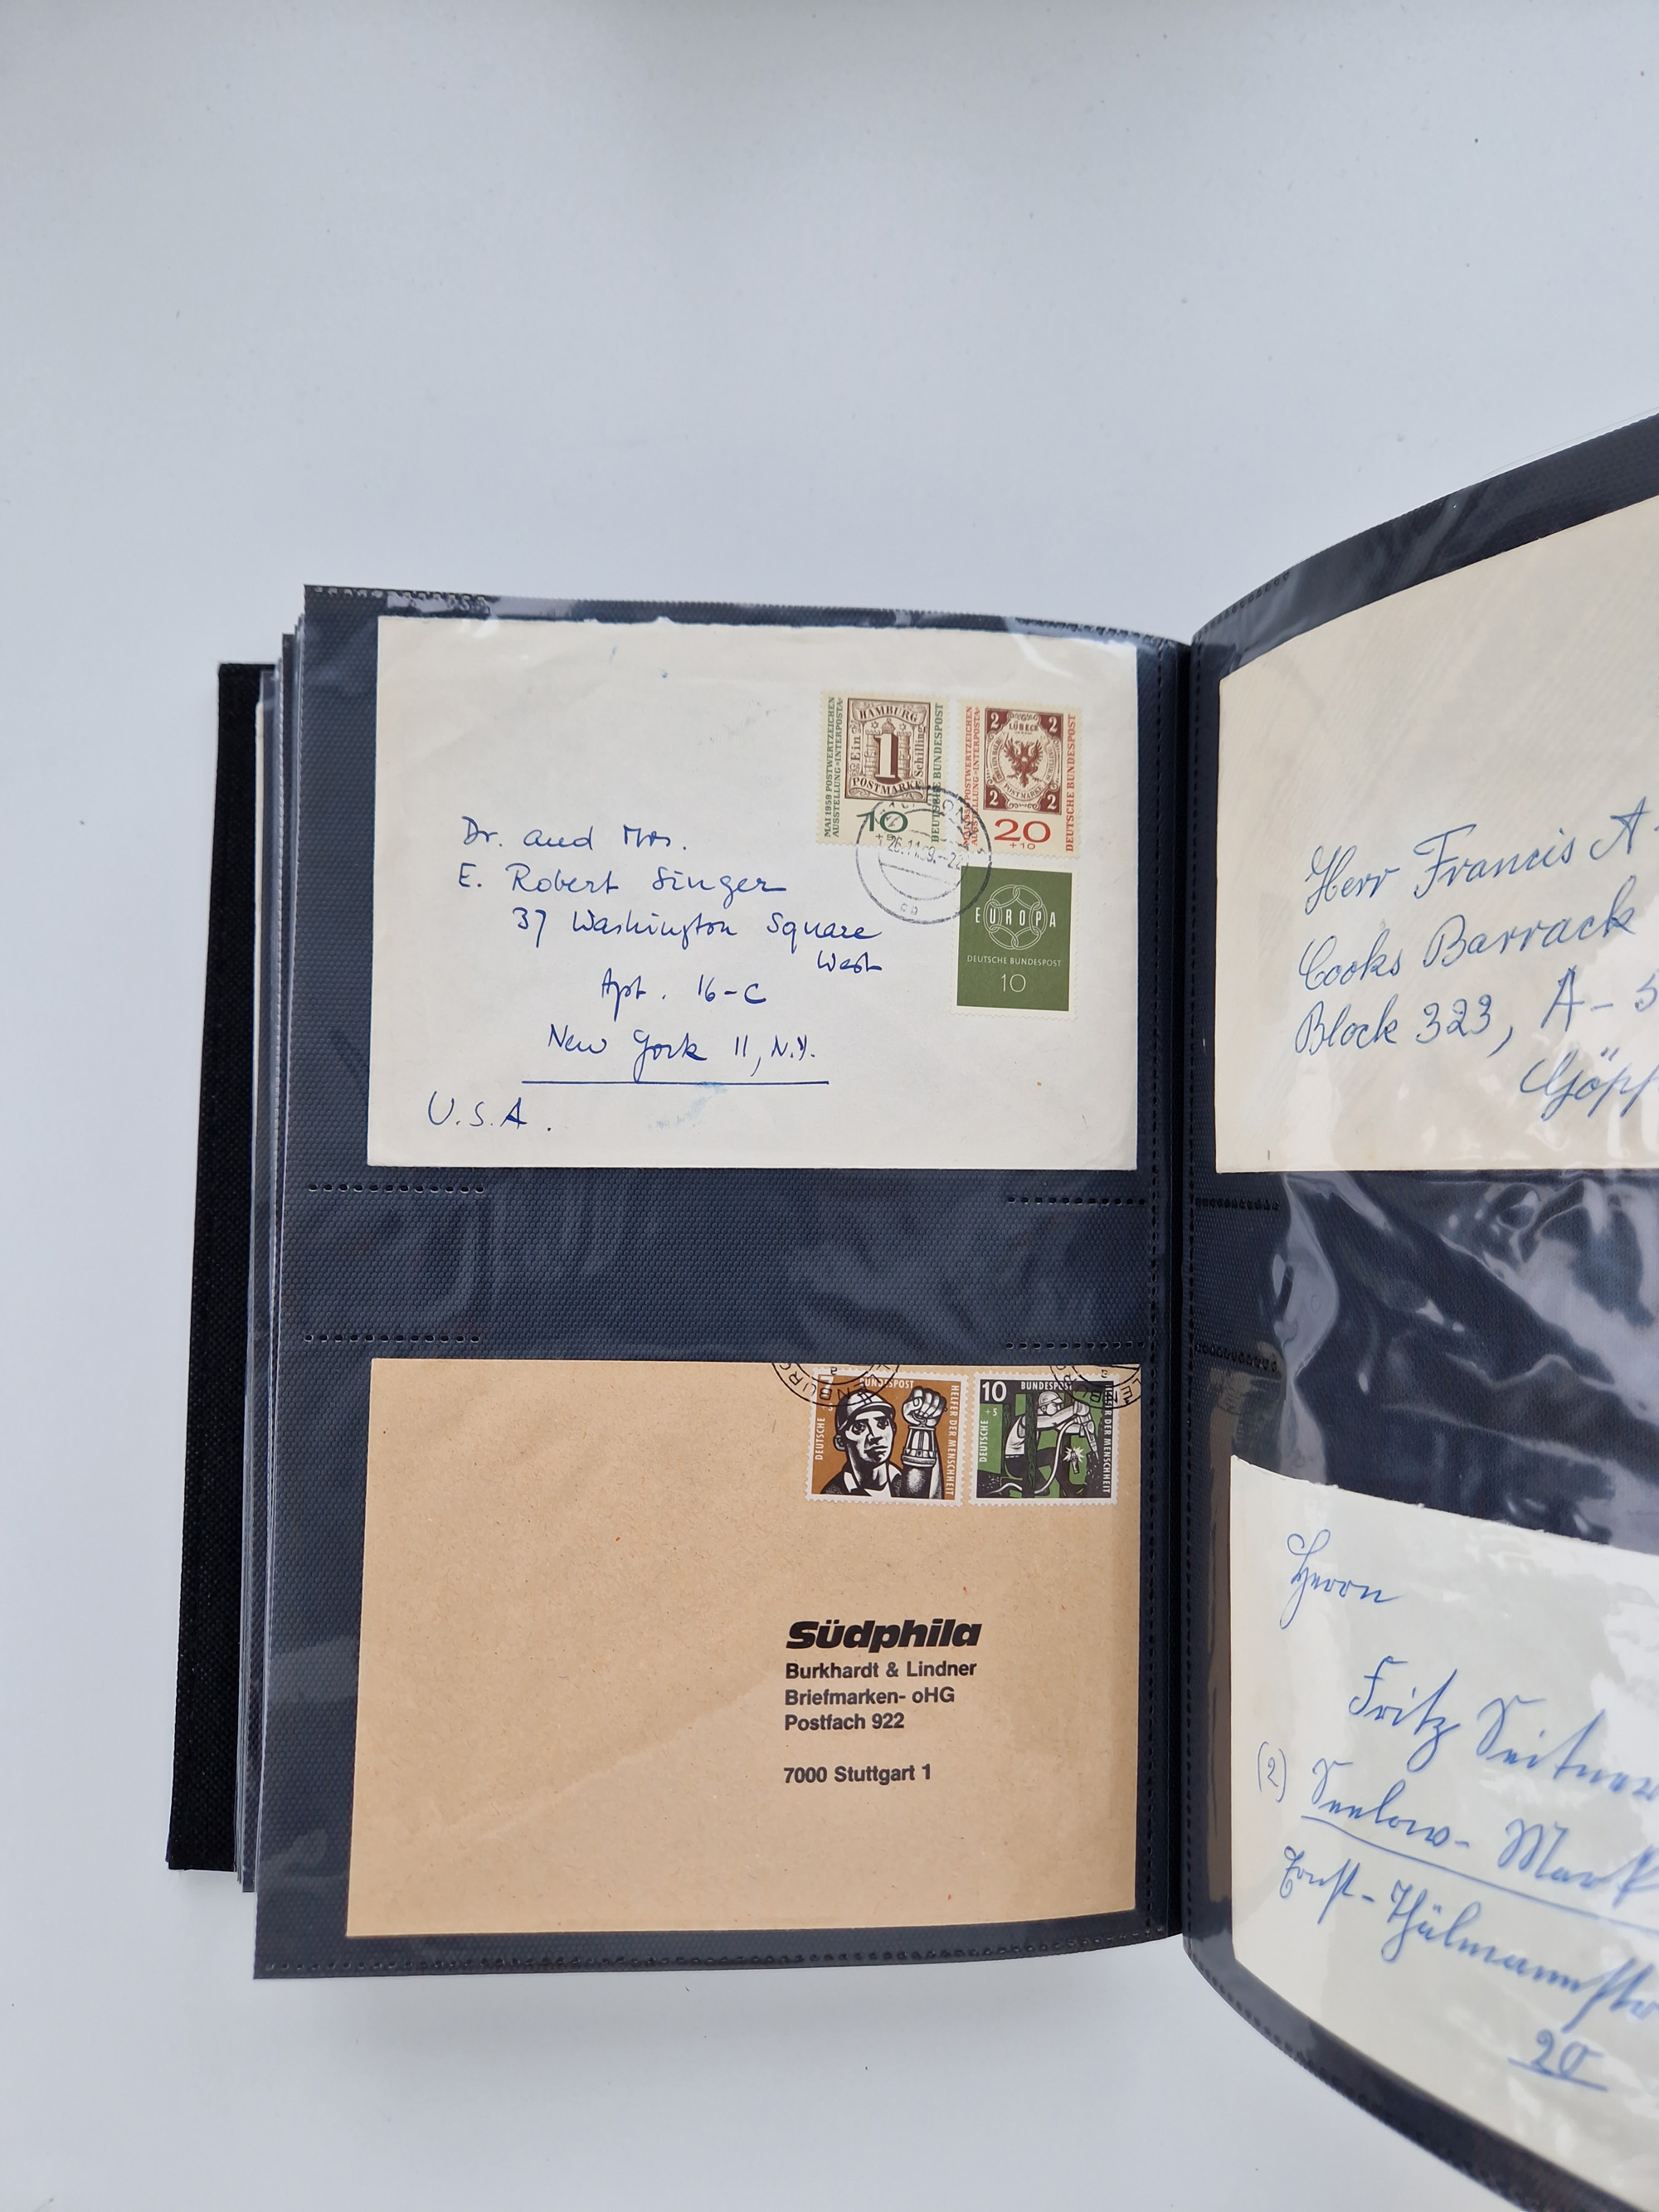 MAI 1959 POSTWERTZEICHEN
AUSSTELLUNG »INTERPOSTA«
HAMBURG
Ein
1
Schilling
POSTMARKE
DEUTSCHE BUNDESPOST
10
POSTWERTZEICHEN
AUSSTELLUNG »INTERPOSTA«
2 2
LÜBECK
POSTMARKE
2 2
DEUTSCHE BUNDESPOST
20
+10
26.11.59.-22
EUROPA
DEUTSCHE BUNDESPOST
10
Dr. and Mrs.
E. Robert Singer
37 Washington Square
West
Apt. 16-C
New York 11, N.Y.
U.S.A.
DEUTSCHE
BUNDESPOST
HELFER DER MENSCHHEIT
10
+5
DEUTSCHE
BUNDESPOST
DER MENSCHHEIT
Südphila
Burkhardt & Lindner
Briefmarken- oHG
Postfach 922
7000 Stuttgart 1
Herr Francis A
Cooks Barrack
Block 323, A-
Göpp
Herrn
Fritz
(2) Seelow-Mark
Ernst-Thälmannstr
20